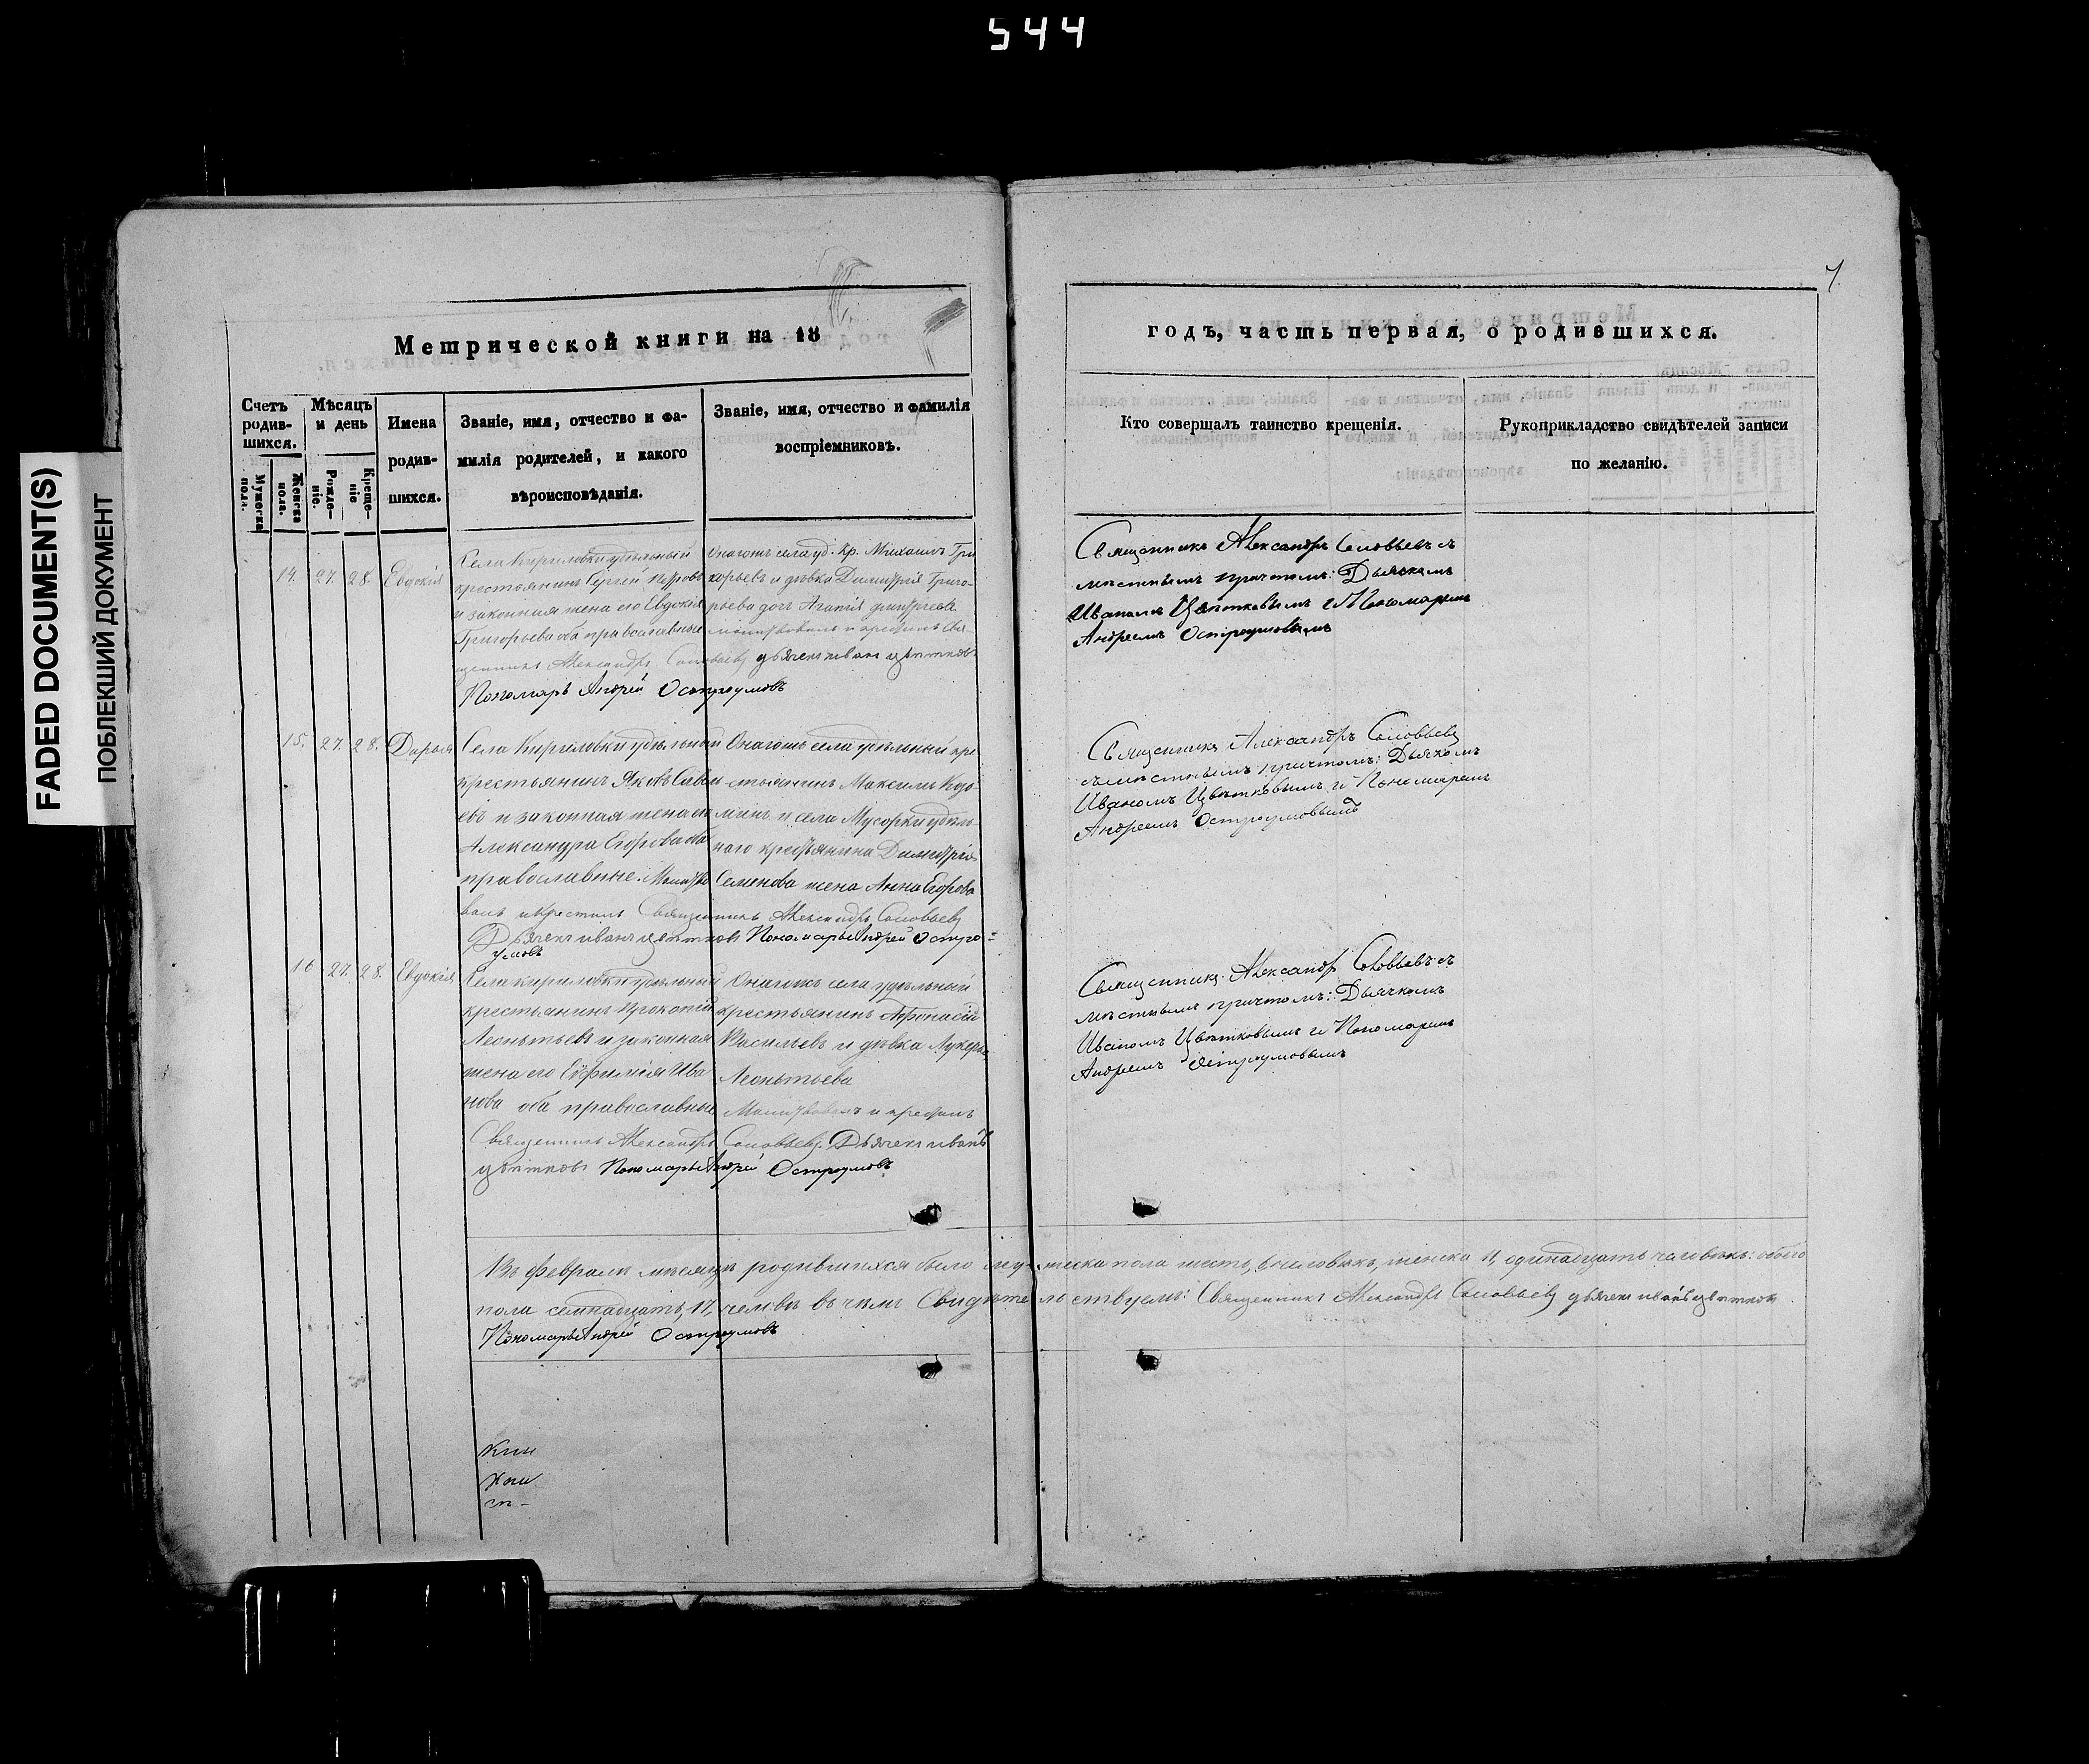 544
FADED DOCUMENT(S)
ПОБЛЕКШИЙ ДОКУМЕНТ
7.
Метрической книги на 18
годъ, часть первая, о родившихся.
Счетъ родив-шихся.
Мужеска пола.
Женска пола.
Мѣсяцъ и день
Рожде-ніе.
Креще-ніе
Имена родив-шихся.
Званіе, имя, отчество и фа-
милія родителей, и какого
вѣроисповѣданія.
Званіе, имя, отчество и фамилія
воспріемниковъ.
Кто совершалъ таинство крещенія.
Рукоприкладство свидѣтелей записи
по желанію.
14. 27. 28. Евдокія
Села Кириловки удѣльный
крестьянинъ Сергѣй Петровъ
и законная жена его Евдокія
Григорьева оба православные
Онагожъ села уд. кр. Михаилъ Гри
горьевъ и дѣвка Димитрія Григо-
рьева дочь
молитвовалъ и крестилъ Свя-
щенникъ Александръ Соловьевъ дьячекъ иванъ цвѣтковъ
Пономарь Андрей Остроумовъ
Священникъ Александръ Соловьевъ съ
мѣстнымъ причтомъ: Дьячкомъ
Иваномъ Цвѣтковымъ и Пономаремъ
Андреемъ Остроумовымъ
15. 27. 28. Дарья
Села Кириловки удѣльный
крестьянинъ Яковъ Савель
евъ и законная жена его
Александра Егорова оба
православные. Молитво
Онагожъ села удѣльный кре
стьянинъ Максимъ Козь
минъ и села Мусорки удѣль-
наго крестьянина Димитрія
Семенова жена Анна Егорова
валъ и крестилъ Священникъ Александръ Соловьевъ
Дьячекъ иванъ цвѣтковъ Пономарь Андрей Остро=
умовъ
Священникъ Александръ Соловьевъ
съ мѣстнымъ причтомъ: Дьячкомъ
Иваномъ Цвѣтковымъ и Пономаремъ
Андреемъ Остроумовымъ
16 27. 28. Евдокія
Села кириловки удѣльный
крестьянинъ Прокопій
Леонтьевъ и законная
жена его Евфимія Ива
нова оба православные
Онагожъ села удѣльный
крестьянинъ Афонасій
Васильевъ и дѣвка Лукерья
Леонтьева
Молитвовалъ и крестилъ
Священникъ Александръ Соловьевъ. Дьячекъ иванъ
цвѣтковъ Пономарь Андрей Остроумовъ
Священникъ Александръ Соловьевъ съ
мѣстнымъ причтомъ: Дьячкомъ
Иваномъ Цвѣтковымъ и Пономаремъ
Андреемъ Остроумовымъ
Въ февралѣ мѣсяцѣ родившихся было мужеска пола шесть, 6 человѣкъ, женска 11, одинадцать человѣкъ: обоего
пола семнадцать, 17, человѣкъ въ чемъ Свидѣтельствуемъ: Священникъ Александръ Соловьевъ дьячекъ иванъ цвѣтковъ
Пономарь Андрей Остроумовъ